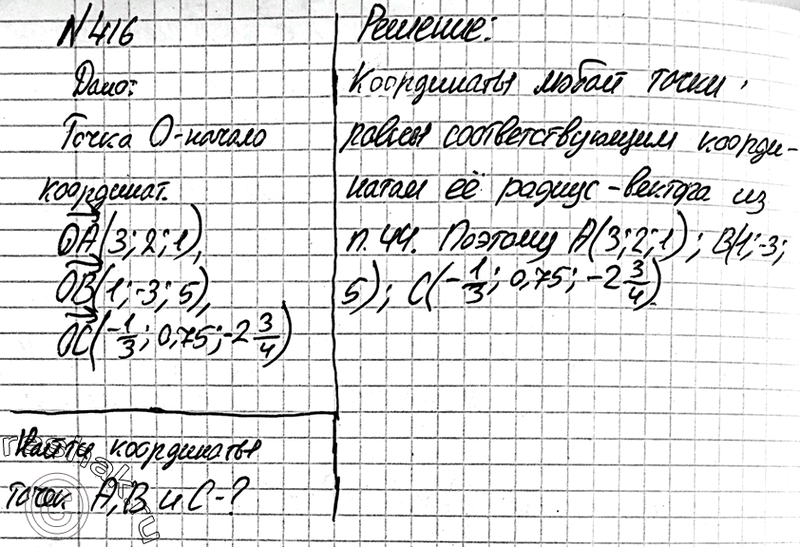 N 416
Дано:
Точка O-начало
координат.
OA(3; 2; 1),
OB(1; -3; 5),
OC(-1/3; 0,75; -2 3/4)
Найти координаты
точек A, B и C-?
Решение:
Координаты любой точки
равны соответствующим коорди-
натам её радиус-вектора из
п. 44. Поэтому A(3; 2; 1); B(1; -3;
5); C(-1/3; 0,75; -2 3/4)
reshak.ru